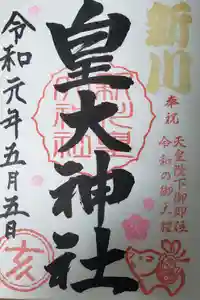 新川
奉祝
天皇陛下御即位
令和の御大禮
皇大神社
令和元年五月五日
亥